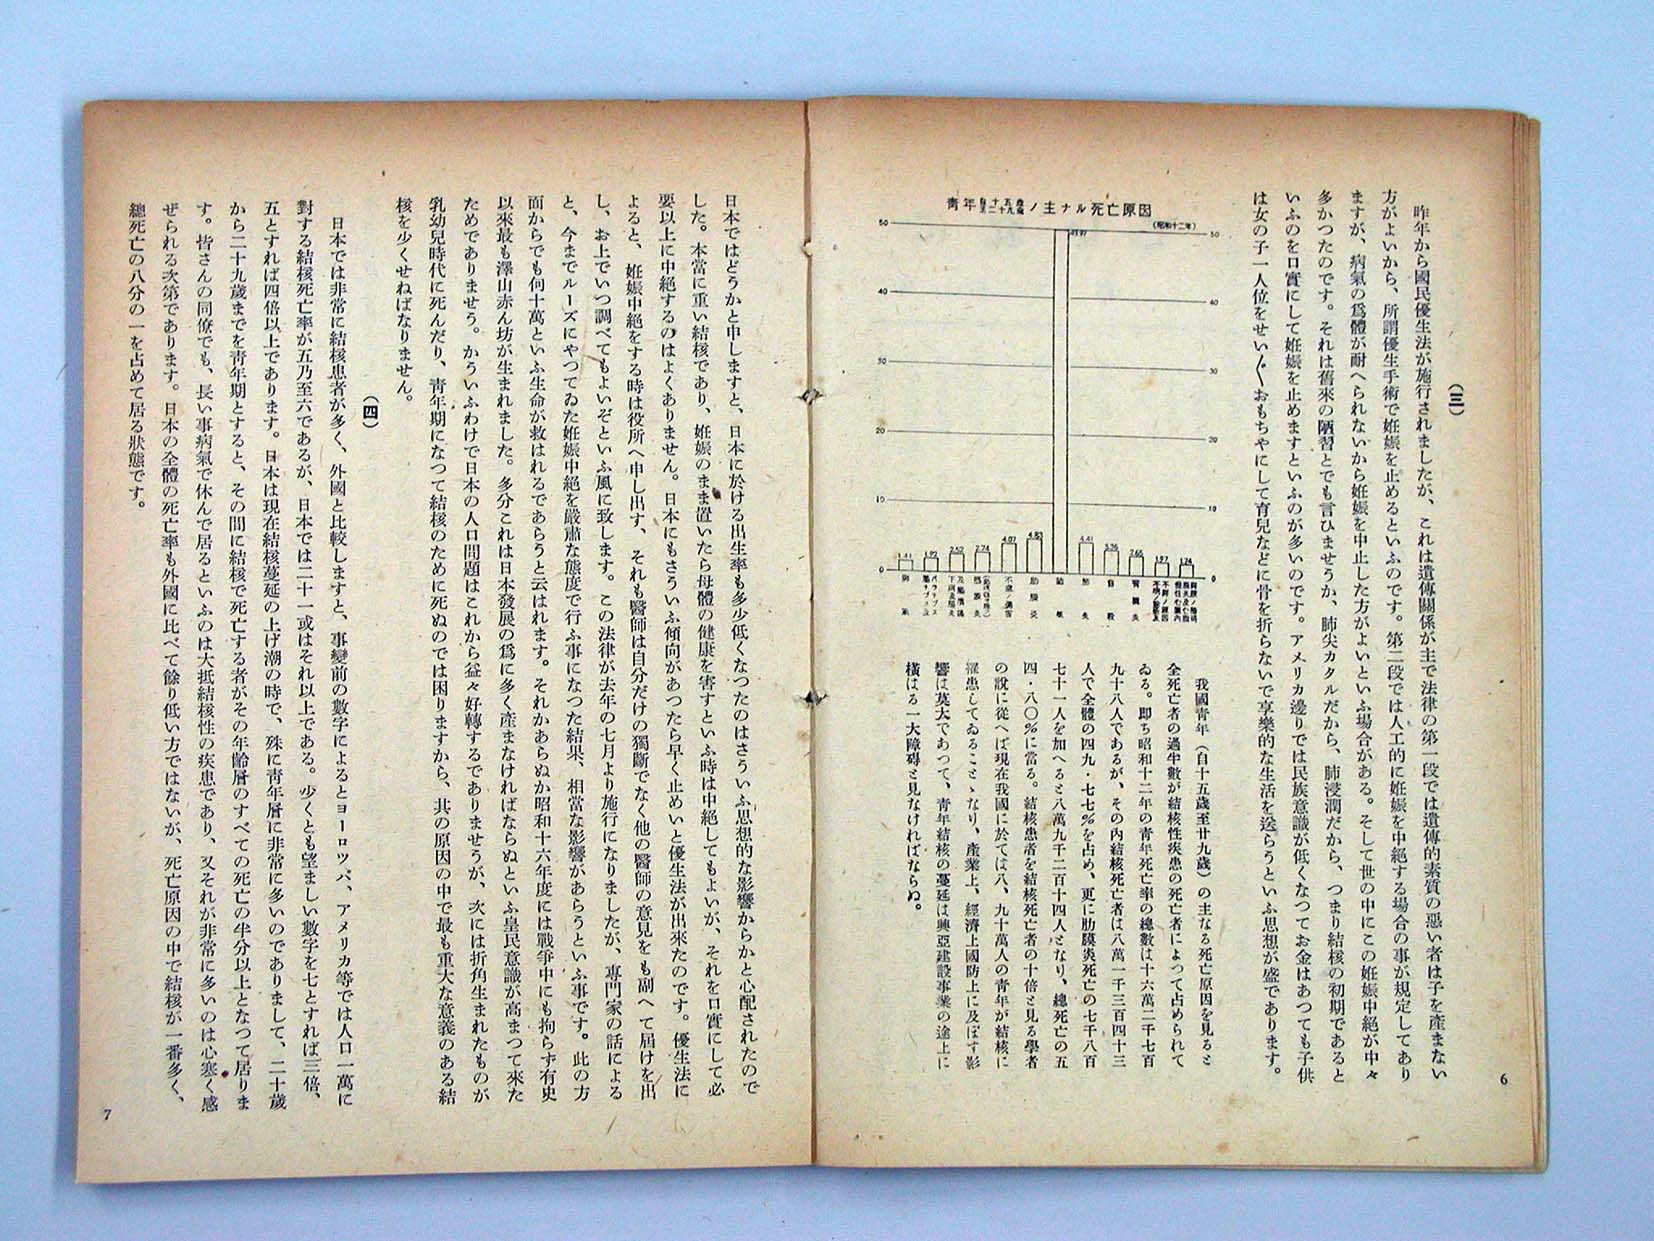 (三)
昨年から國民優生法が施行されましたが、これは遺傳關係が主で法律の第一段では遺傳的素質の惡い者は子を產まない
方がよいから、所謂優生手術で妊娠を止めるといふのです。第二段では人工的に妊娠を中絶する場合の事が規定してあり
ますが、病氣の爲體が耐へられないから妊娠を中止した方がよいといふ場合がある。そして世の中にこの妊娠中絶が中々
多かつたのです。それは舊來の陋習とでも言ひませうか、肺尖カタルだから、肺浸潤だから、つまり結核の初期であると
いふのを口實にして妊娠を止めますといふのが多いのです。アメリカ邊りでは民族意識が低くなつてお金はあつても子供
は女の子一人位をせい〴〵おもちやにして育兒などに骨を折らないで享樂的な生活を送らうといふ思想が盛であります。
青年自十五歲至二十九歲ノ主ナル死亡原因
(昭和十二年)
50
40
30
20
10
0
50
40
30
20
10
0
1.41
1.92
2.52
2.74
4.07
4.83
49.97
4.41
3.36
2.65
1.97
1.74
脚氣
不慮ノ傷害
肋膜炎
結核
肺炎
自殺
腎臟炎
我國青年(自十五歲至廿九歲)の主なる死亡原因を見ると
全死亡者の過半數が結核性疾患の死亡者によつて占められて
ゐる。卽ち昭和十二年の青年死亡率の總數は十六萬二千七百
九十八人であるが、その內結核死亡者は八萬一千三百四十三
人で全體の四九・七七%を占め、更に肋膜炎死亡の七千八百
七十一人を加へると八萬九千二百十四人となり、總死亡の五
四・八〇%に當る。結核患者を結核死亡者の十倍と見る學者
の說に從へば現在我國に於ては八、九十萬人の青年が結核に
罹患してゐることゝなり、產業上、經濟上國防上に及ぼす影
響は莫大であつて、青年結核の蔓延は興亞建設事業の途上に
橫はる一大障碍と見なければならぬ。
6
日本ではどうかと申しますと、日本に於ける出生率も多少低くなつたのはさういふ思想的な影響からかと心配されたので
した。本當に重い結核であり、妊娠のまま置いたら母體の健康を害すといふ時は中絶してもよいが、それを口實にして必
要以上に中絶するのはよくありません。日本にもさういふ傾向があつたら早く止めいと優生法が出來たのです。優生法に
よると、妊娠中絶をする時は役所へ申し出す、それも醫師は自分だけの獨斷でなく他の醫師の意見をも副へて屆けを出
し、お上でいつ調べてもよいぞといふ風に致します。この法律が去年の七月より施行になりましたが、專門家の話による
と、今までルーズにやつてゐた妊娠中絶を嚴肅な態度で行ふ事になつた結果、相當な影響があらうといふ事です。此の方
面からでも何十萬といふ生命が救はれるであらうと云はれます。それかあらぬか昭和十六年度には戰爭中にも拘らず有史
以來最も澤山赤ん坊が生まれました。多分これは日本發展の爲に多く產まなければならぬといふ皇民意識が高まつて來た
ためでありませう。かういふわけで日本の人口問題はこれから益々好轉するでありませうが、次には折角生まれたものが
乳幼兒時代に死んだり、青年期になつて結核のために死ぬのでは困りますから、共の原因の中で最も重大な意義のある結
核を少くせねばなりません。
(四)
日本では非常に結核患者が多く、外國と比較しますと、事變前の數字によるとヨーロツパ、アメリカ等では人口一萬に
對する結核死亡率が五乃至六であるが、日本では二十一或はそれ以上である。少くとも望ましい數字を七とすれば三倍、
五とすれば四倍以上であります。日本は現在結核蔓延の上げ潮の時で、殊に青年層に非常に多いのでありまして、二十歲
から二十九歲までを青年期とすると、その間に結核で死亡する者がその年齡層のすべての死亡の半分以上となつて居りま
す。皆さんの同僚でも、長い事病氣で休んで居るといふのは大抵結核性の疾患であり、又それが非常に多いのは心寒く感
ぜられる次第であります。日本の全體の死亡率も外國に比べて餘り低い方ではないが、死亡原因の中で結核が一番多く、
總死亡の八分の一を占めて居る狀態です。
7